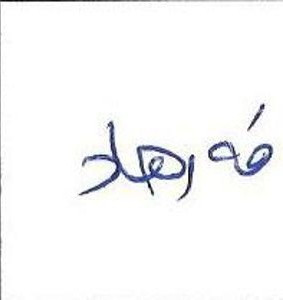 فەرهاد